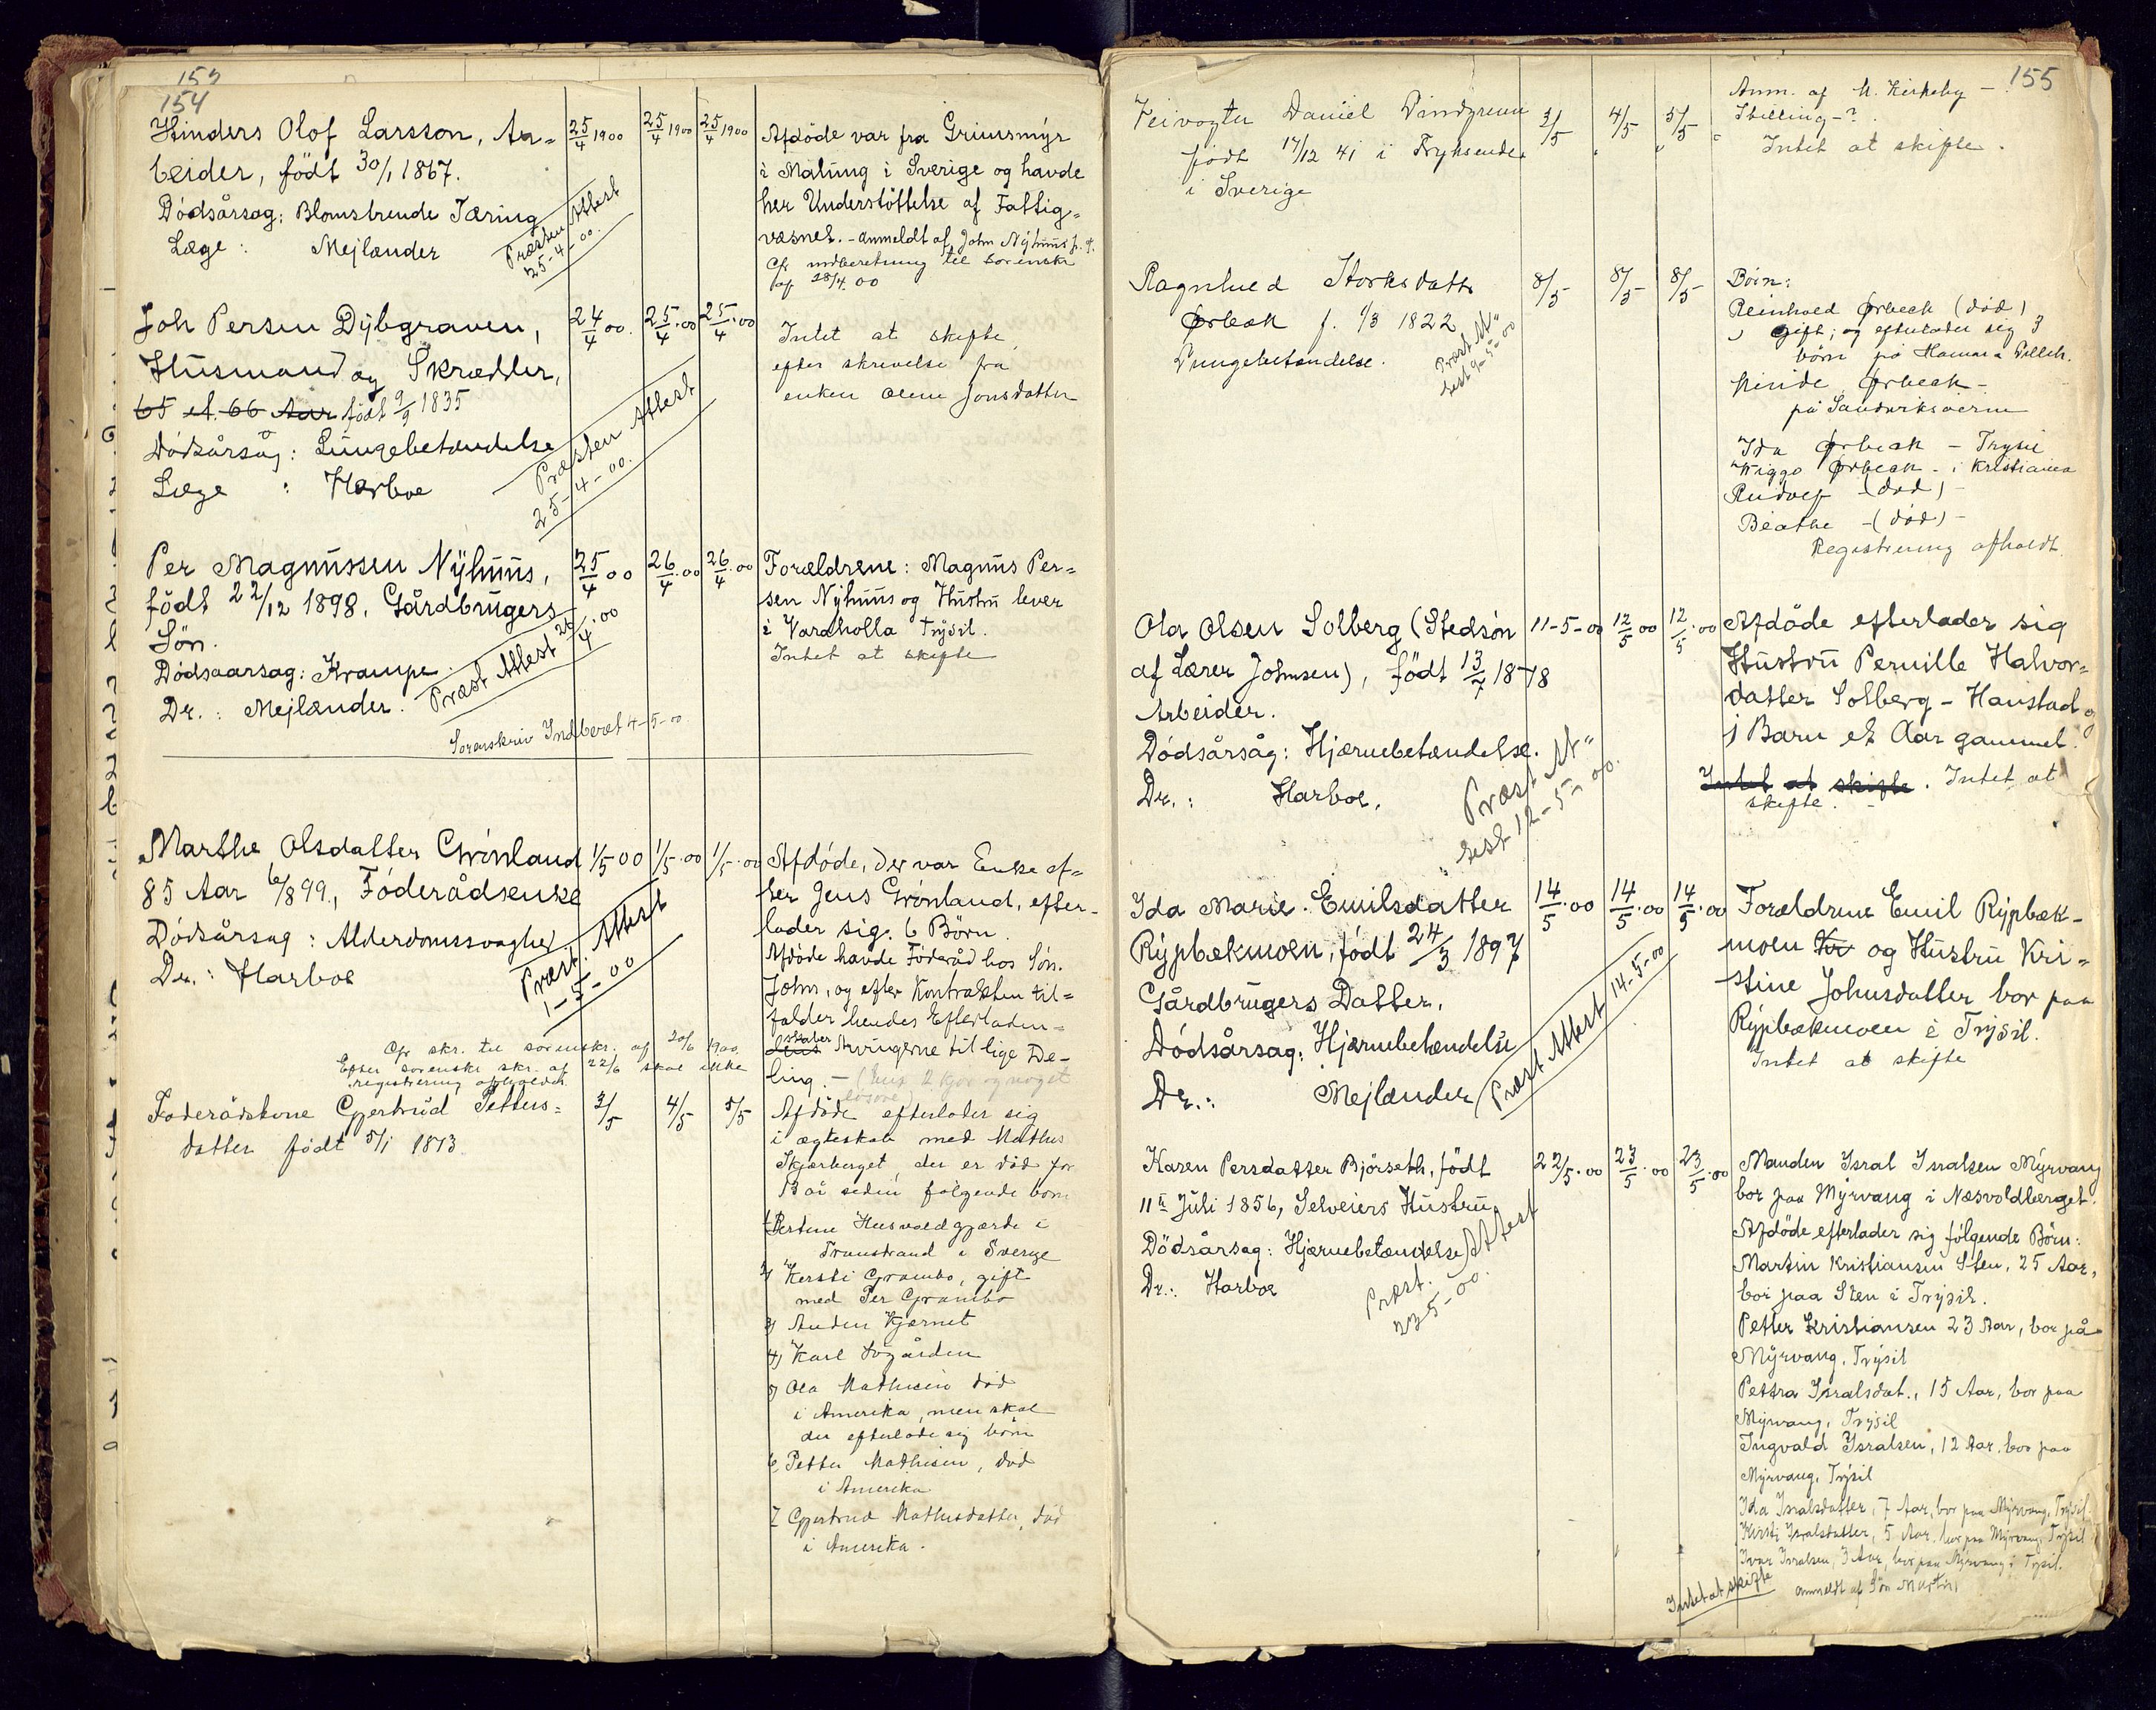 153
154
Hinders Olof Larsson, Ar=
beider, født 30/1 1867.
Dödsårsag: Blomstrende Tæring
Læge: Mejlænder
Præsten Attest
25-4-00.
25/4 1900 25/4 1900 25/4 1900
Afdöde var fra Grimsmyr
i Malung i Sverige og havde
her Understöttelse af Fattig=
væsnet. - anmeldt af John Nyhuus
Cfr indberetning til sorenskr
af 28/4 00
Joh Persen Dybgraven,
Husmand og Skrædder,
65 el. 66 Aar født 9/9 1835
Dödsårsag: Lungebetændelse
Læge: Harboe
Præsten Attest
25-4-00.
24/4 00. 25/4.00 25/4.00
Intet at skifte
efter skrivelse fra
enken Oline Jonsdatter
Per Magnussen Nyhuus,
födt 22/12 1898, Gårdbrugers
Sön.
Dödsaarsag: Krampe.
Dr.: Mejlænder.
Præst Attest 26/4.00
Sorenskriv Indberet 4-5-00.
25/4 00 26/4.00 26/4.00
Forældrene: Magnus Per=
sen Nyhuus og Hustru lever
i Varaholla Trysil.
Intet at skifte
Marthe Olsdatter Grönland
85 Aar 6/8 99., Föderådsenke
Dödsårsag: Alderdomssvaghed
Dr.: Harboe
Præst. Attest
1-5-00
1/5 00 1/5.00 1/5.00
Afdöde, der var Enke ef=
ter Jens Grönland, efter-
lader sig 6 Börn.
Afdöde havde Föderåd hos Sön.
John, og efter Kontrakten til=
falder hendes Efterladen=
skaber Arvingerne til lige De=
ling. -
Cfr skr. til sorenskr. af 20/6 1900.
Efter sorenskr skr. af 22/6 skal ikke
registrering afholdes
Foderådskone Gjertrud Petters=
datter født 5/1 1813.
3/5 4/5 5/5
Afdöde efterlader sig
i ægteskab med Mathis
Skjærberget, der er död for
13 år siden følgende børn
1) Pertine Husvoldgjærde i
Transtrand i Sverige
2) Kersti Grambo, gift
med Per Grambo
3) Anden Kjærnet
4) Karl Nygården
5) Ola Mathisen död
i Amerika, men skal
der efterlade sig börn
6, Petter Mathisen, död
i Amerika
7 Gjertrud Mathisdatter, död
i Amerika.
155
Veivogter Daniel Lindgreen
født 17/12 41 i Fryksende
i Sverige
3/5 4/5 5/5
Anm. af M. Kirkeby -
Stilling-?
Intet at skifte.
Ragnhild Storksdatter
Ørbæk f. 1/3 1822
Lungebetændelse.
Præst At"
test 9-5-00
8/5 8/5 8/5
Börn:
Reinhold Ørbeck (død)
gift, og efterlader sig 3
børn på Hamar
Minde Ørbeck -
på Sandviksøiern
Ida Ørbeck - Trysil
Viggo Ørbeck - i Kristiania
Rudolf (död) -
Beathe - (död) -
Registrering afholdt.
Ola Olsen Solberg (Stedsön
af Lærer Johnsen), födt 13/7 1878
Arbeider.
Dödsårsåg: Hjærnebetændelse.
Dr.: Harboe.
Præst At"
test 12-5-00.
11-5-00 12/5 00 12/5.00
Afdöde efterlader sig
Hustru Pernille Halvor=
datter Solberg - Hanstad og
1 Barn et Aar gammel.
Intet at skifte. Intet at
skifte.
Ida Marie Emilsdatter
Rypbækmoen, födt 24/3 1897
Gårdbrugers Datter,
Dödsårsag: Hjærnebetændelse
Dr.: Mejlænder
Præst Attest 14-5-00
14/5.00 14/5.00 14/5.00
Forældrene Emil Rypbæk-
moen Kr og Hustru Kri=
stine Johnsdatter bor paa
Rypbækmoen i Trysil.
Intet at skifte
Karen Persdatter Björseth, födt
11te Juli 1856, Selveiers Hustru
Dödsårsag: Hjærnebetændelse
Dr.: Harboe
Præst. Attest
23-5-00.
22/5.00 23/5.00 23/5.00
Manden Isral Isralsen Myrvang
bor paa Myrvang i Næsvoldberget.
Afdöde efterlader sig fölgende Börn:
Martin Kristiansen Sten, 25 Aar,
bor paa Sten i Trysil.
Petter Kristiansen 23 Aar, bor på
Myrvang, Trysil
Pettra Isralsdat., 15 Aar, bor paa
Myrvang, Trysil
Ingvald Isralsen, 12 Aar, bor paa
Myrvang, Trysil
Ida Isralsdatter, 7 Aar, bor paa Myrvang, Trysil
Kersti Isralsdatter, 5 Aar, bor paa Myrvang, Trysil
Ivar Isralsen, 3 Aar, bor paa Myrvang i Trysil.
Intet at skifte
anmeldt af Sön Martin